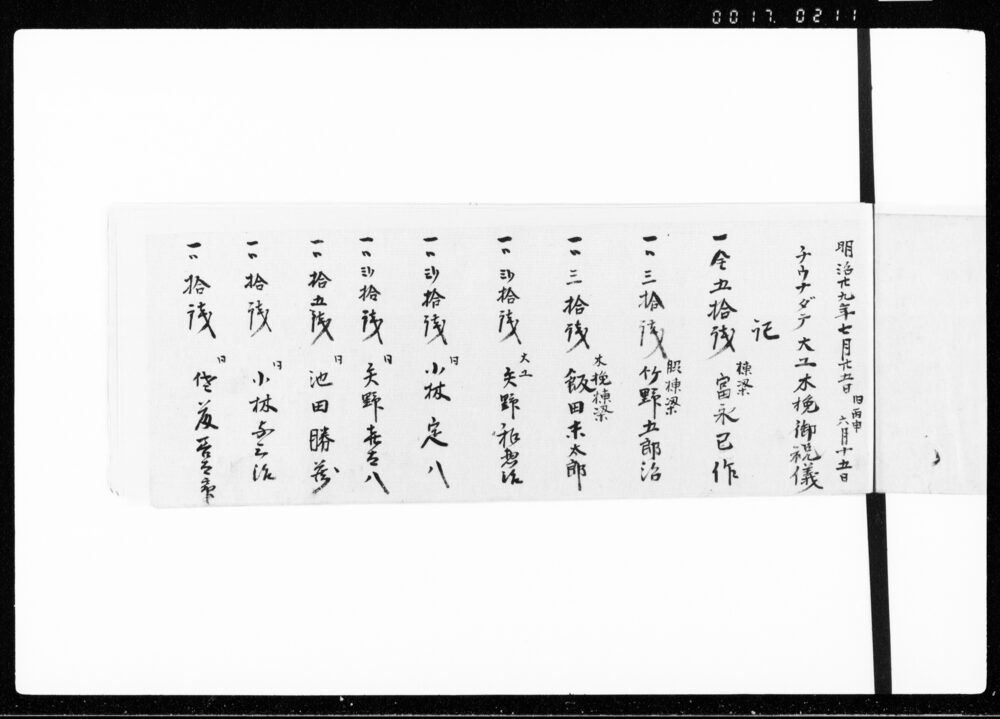 0017 0211
明治廿九年七月廿五日 旧丙申 六月十五日
チウナダテ大工木挽御祝儀
記
一金五拾銭 棟梁 富永已作
一〃三拾銭 脇棟梁 竹野五郎治
一〃三拾銭 木挽棟梁 飯田末太郎
一〃弐拾銭 大工 矢野
一〃弐拾銭 同 小林定八
一〃弐拾銭 同 矢野喜吉八
一〃拾五銭 同 池田勝蔵
一〃拾銭 同 小林
一〃拾銭 同